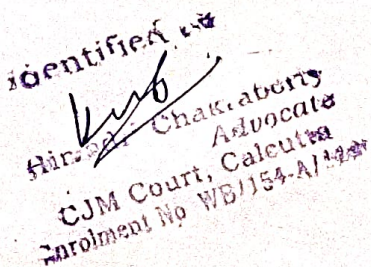 Identified
Chakraborty
Advocate
CJM Court, Calcutta
Enrolment No WB/154-A/